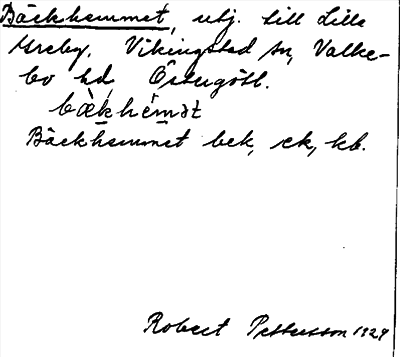 Bäckhemmet, utj. till Lilla
Greby, Vikingstad sn, Valke-
bo hd, Östergötl.
bækhèmət
Bäckhemmet bek, ek, kb.
Robert Pettersson 1929